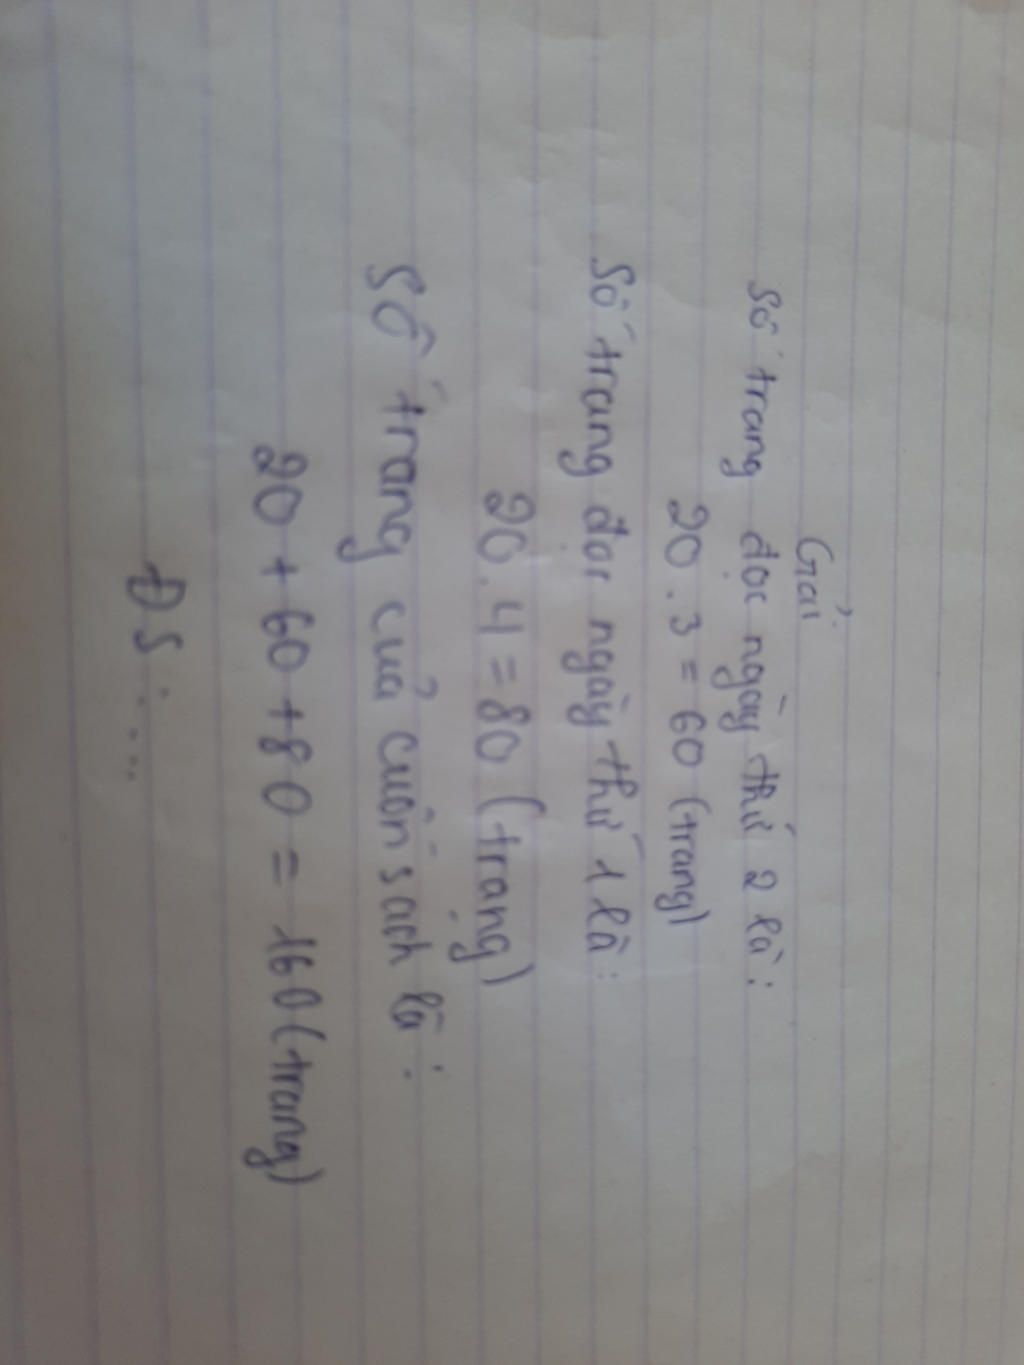 Giải
Số trang đọc ngày thứ 2 là:
20 . 3 = 60 (trang)
Số trang đọc ngày thứ 1 là:
20 . 4 = 80 (trang)
Số trang của cuốn sach là:
20 + 60 + 80 = 160 (trang)
ĐS: ...